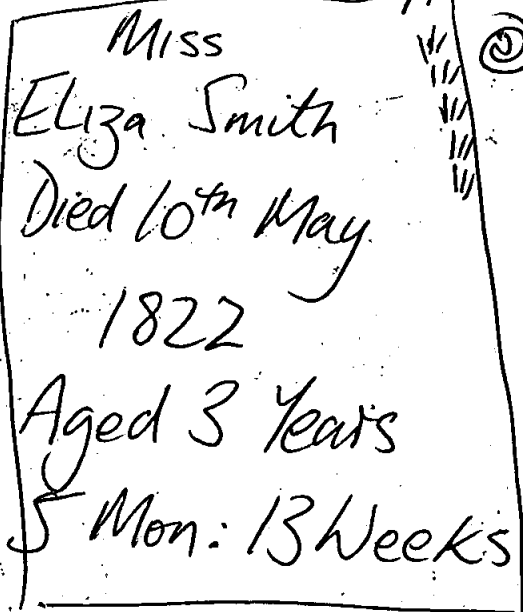 Miss
Eliza Smith
Died 10th May
1822
Aged 3 Years
5 Mon: 13 Weeks